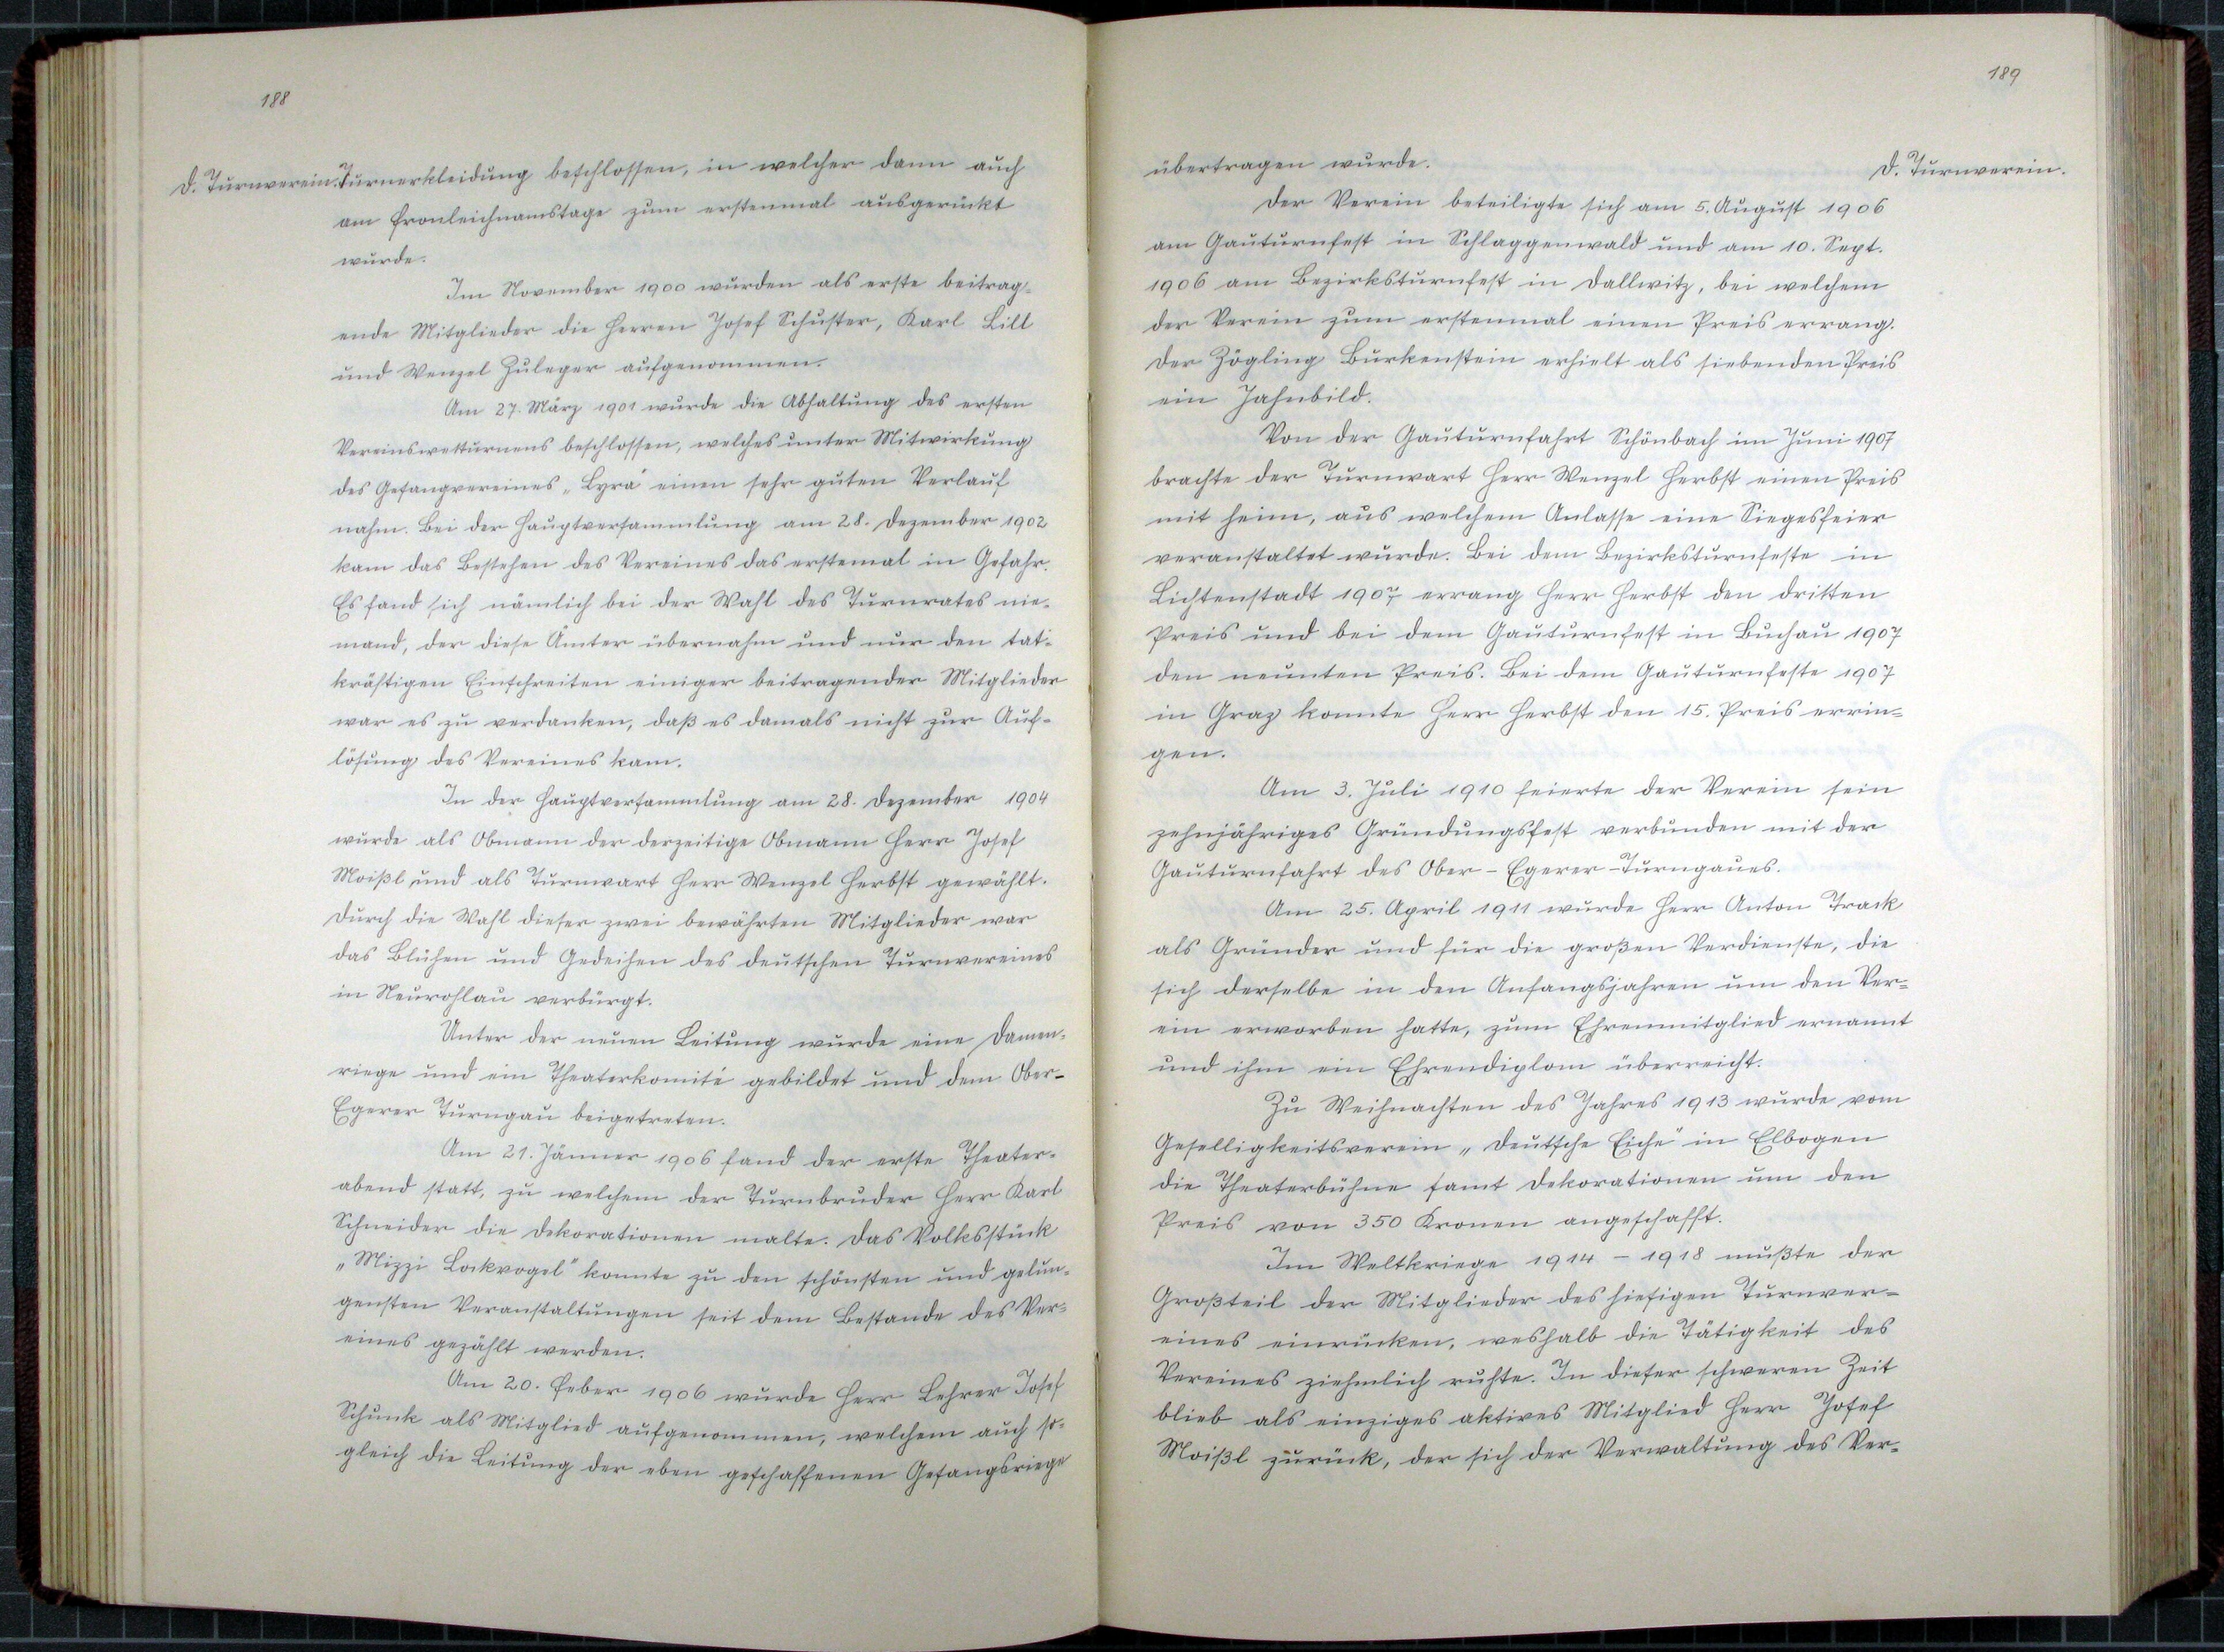 188
D. Turnverein. Turnerkleidung beschlossen, in welcher dann auch
am Fronleichnamstage zum erstenmal ausgerückt
wurde.
Im November 1900 wurden als erste beitrag=
ende Mitglieder die Herren Josef Schuster, Karl Lill
und Wenzel Zuleger aufgenommen.
Am 27. März 1901 wurde die Abhaltung des ersten
Vereinswetturnens beschlossen, welches unter Mitwirkung
des Gesangvereines „Lyra" einen sehr guten Verlauf
nahm. Bei der Hauptversammlung am 28. Dezember 1902
kam das Bestehen des Vereines das erstemal in Gefahr.
Es fand sich nämlich bei der Wahl des Turnrates nie-
mand, der diese Ämter übernahm und nur den tat-
kräftigen Einschreiten einiger beitragender Mitglieder
war es zu verdanken, daß es damals nicht zur Auf-
lösung des Vereines kam.
In der Hauptversammlung am 28. Dezember 1904
wurde als Obmann der derzeitige Obmann Herr Josef
Moißl und als Turnwart Herr Wenzel Herbst gewählt.
Durch die Wahl dieser zwei bewährten Mitglieder war
das Blühen und Gedeihen des deutschen Turnvereines
in Neurohlau verbürgt.
Unter der neuen Leitung wurde eine Damen-
riege und ein Theaterkomité gebildet und dem Ober-
Egerer Turngau beigetreten.
Am 21. Jänner 1906 fand der erste Theater-
abend statt, zu welchem der Turnbruder Herr Karl
Schneider die Dekorationen malte. Das Volksstück
„Mizzi Lockvogel" konnte zu den schönsten und gelun-
gensten Veranstaltungen seit dem Bestande des Ver-
eines gezählt werden.
Am 20. Feber 1906 wurde Herr Lehrer Josef
Schunk als Mitglied aufgenommen, welchem auch so-
gleich die Leitung der eben geschaffenen Gesangsriege
189
D. Turnverein.
übertragen wurde.
Der Verein beteiligte sich am 5. August 1906
am Gauturnfest in Schlaggenwald und am 10. Sept.
1906 am Bezirksturnfest in Dallwitz, bei welchem
der Verein zum erstenmal einen Preis errang.
Der Zögling Burkenstein erhielt als siebenden Preis
ein Jahnbild.
Von der Gauturnfahrt Schönbach im Juni 1907
brachte der Turnwart Herr Wenzel Herbst einen Preis
mit heim, aus welchem Anlasse eine Siegesfeier
veranstaltet wurde. Bei dem Bezirksturnfeste in
Lichtenstadt 1907 errang Herr Herbst den dritten
Preis und bei dem Gauturnfest in Buchau 1907
den neunten Preis. Bei dem Gauturnfeste 1907
in Graz konnte Herr Herbst den 15. Preis errin=
gen.
Am 3. Juli 1910 feierte der Verein sein
zehnjähriges Gründungsfest verbunden mit der
Gauturnfahrt des Ober-Egerer-Turngaues.
Am 25. April 1911 wurde Herr Anton Track
als Gründer und für die großen Verdienste, die
sich derselbe in den Anfangsjahren um den Ver=
ein erworben hatte, zum Ehrenmitglied ernannt
und ihm ein Ehrendiplom überreicht.
Zu Weihnachten des Jahres 1913 wurde vom
Geselligkeitsverein „Deutsche Eiche" in Elbogen
die Theaterbühne samt Dekorationen um den
Preis von 350 Kronen angeschafft.
Im Weltkriege 1914 - 1918 mußte der
Großteil der Mitglieder des hiesigen Turnver-
eines einrücken, weshalb die Tätigkeit des
Vereines ziehmlich ruhte. In dieser schweren Zeit
blieb als einziges aktives Mitglied Herr Josef
Moißl zurück, der sich der Verwaltung des Ver-